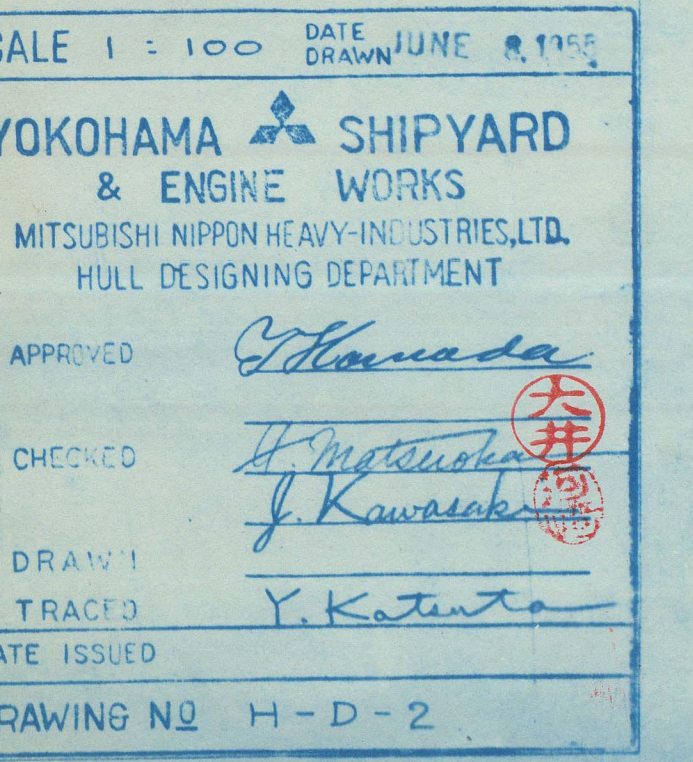 CALE 1 : 100 DATE DRAWN JUNE 8. 1955
YOKOHAMA SHIPYARD
& ENGINE WORKS
MITSUBISHI NIPPON HEAVY-INDUSTRIES, LTD.
HULL DESIGNING DEPARTMENT
APPROVED T Hamada
大井
CHECKED H. Matsuoka
J. Kawasaki
DRAWN
TRACED Y. Katsuta
ATE ISSUED
RAWING NO H-D-2